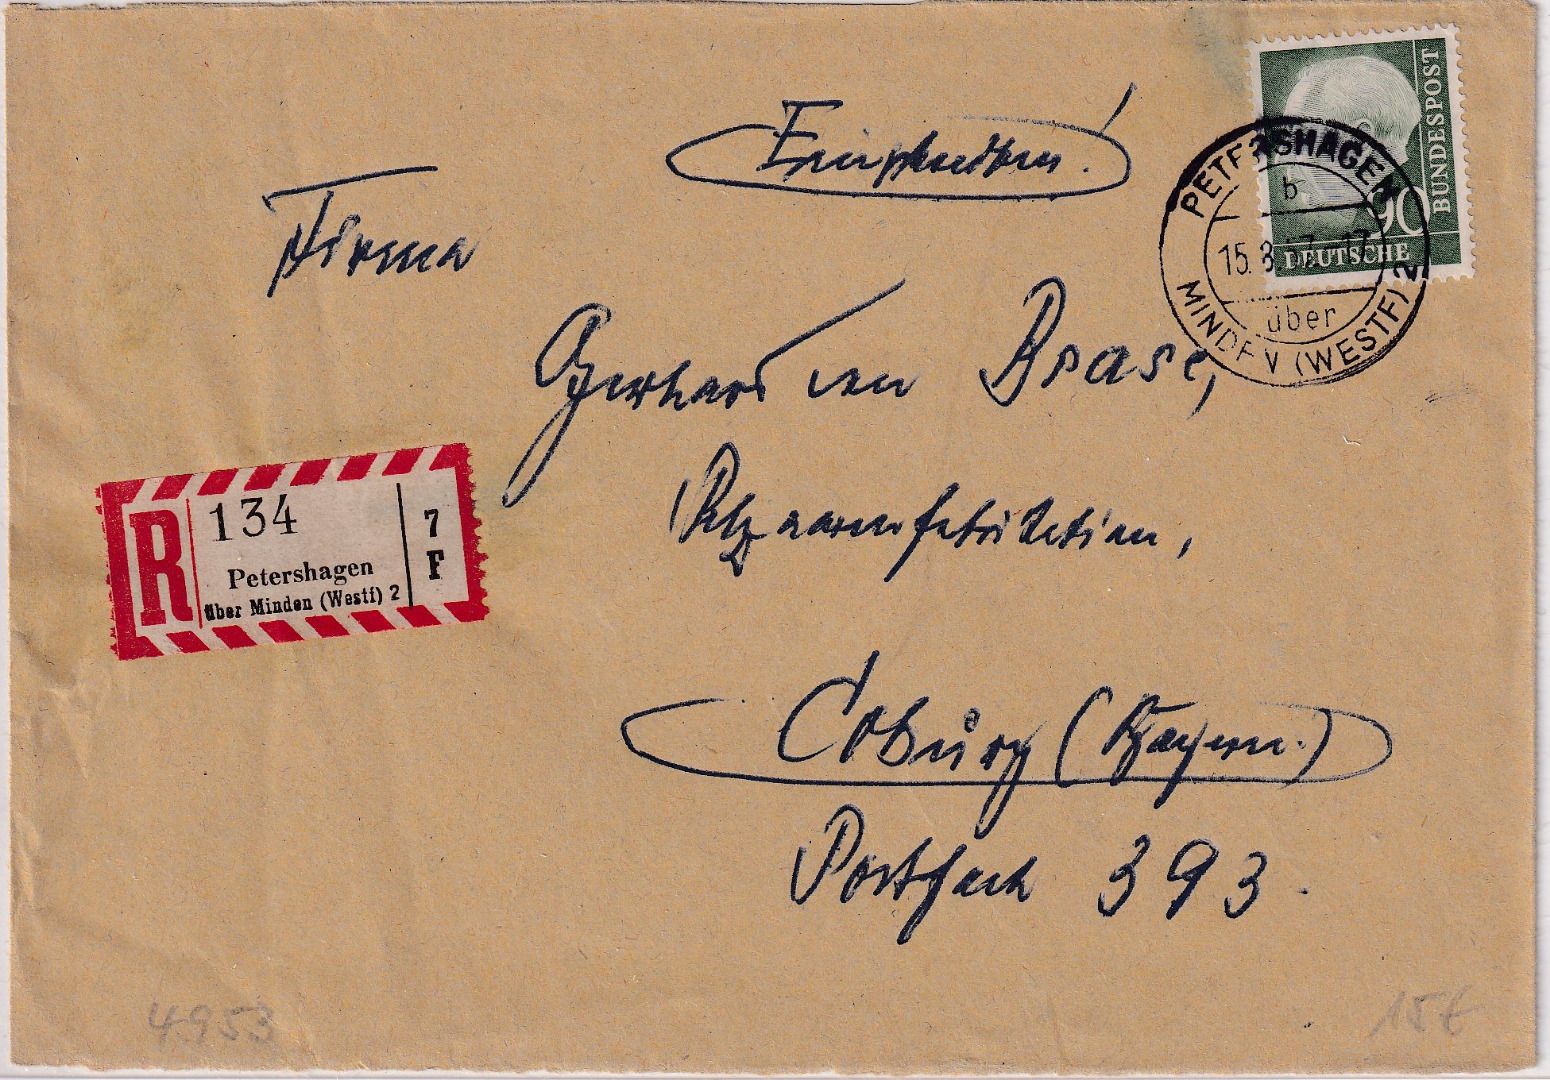 Einschreiben!
Firma
Gerhard von Brase,
Pelzwarenfabrikation,
Coburg (Bayern.)
Postfach 393.
DEUTSCHE
BUNDESPOST
90
PETERSHAGEN
b
15. 8. 57.-17
über
MINDEN (WESTF) 2
R
134
Petershagen
über Minden (Westf) 2
7
F
4953
15€